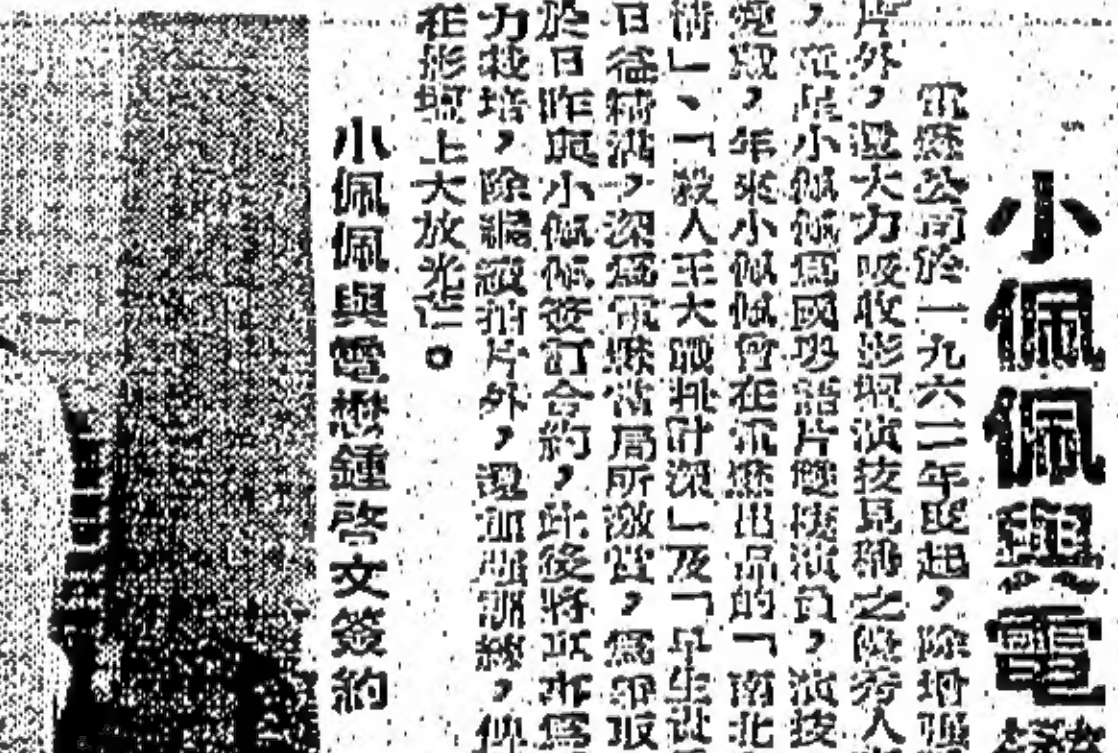 小佩佩與電
電懋公司於一九六二年度起，除增強
片外，還大力吸收影壇演技見稱之優秀人
，童星小佩佩為國粵語片雙棲演員，演技
愛戴，年來小佩佩曾在電懋出品的「南北
情」、「殺人王大戰扭計深」及「早生貴
日益精湛，深為電懋當局所激賞，為爭取
於日昨與小佩佩簽訂合約，此後將更亦為
力栽培，除繼續拍片外，還加訓練，俾
在影壇上大放光芒。
小佩佩與電懋鍾啓文簽約